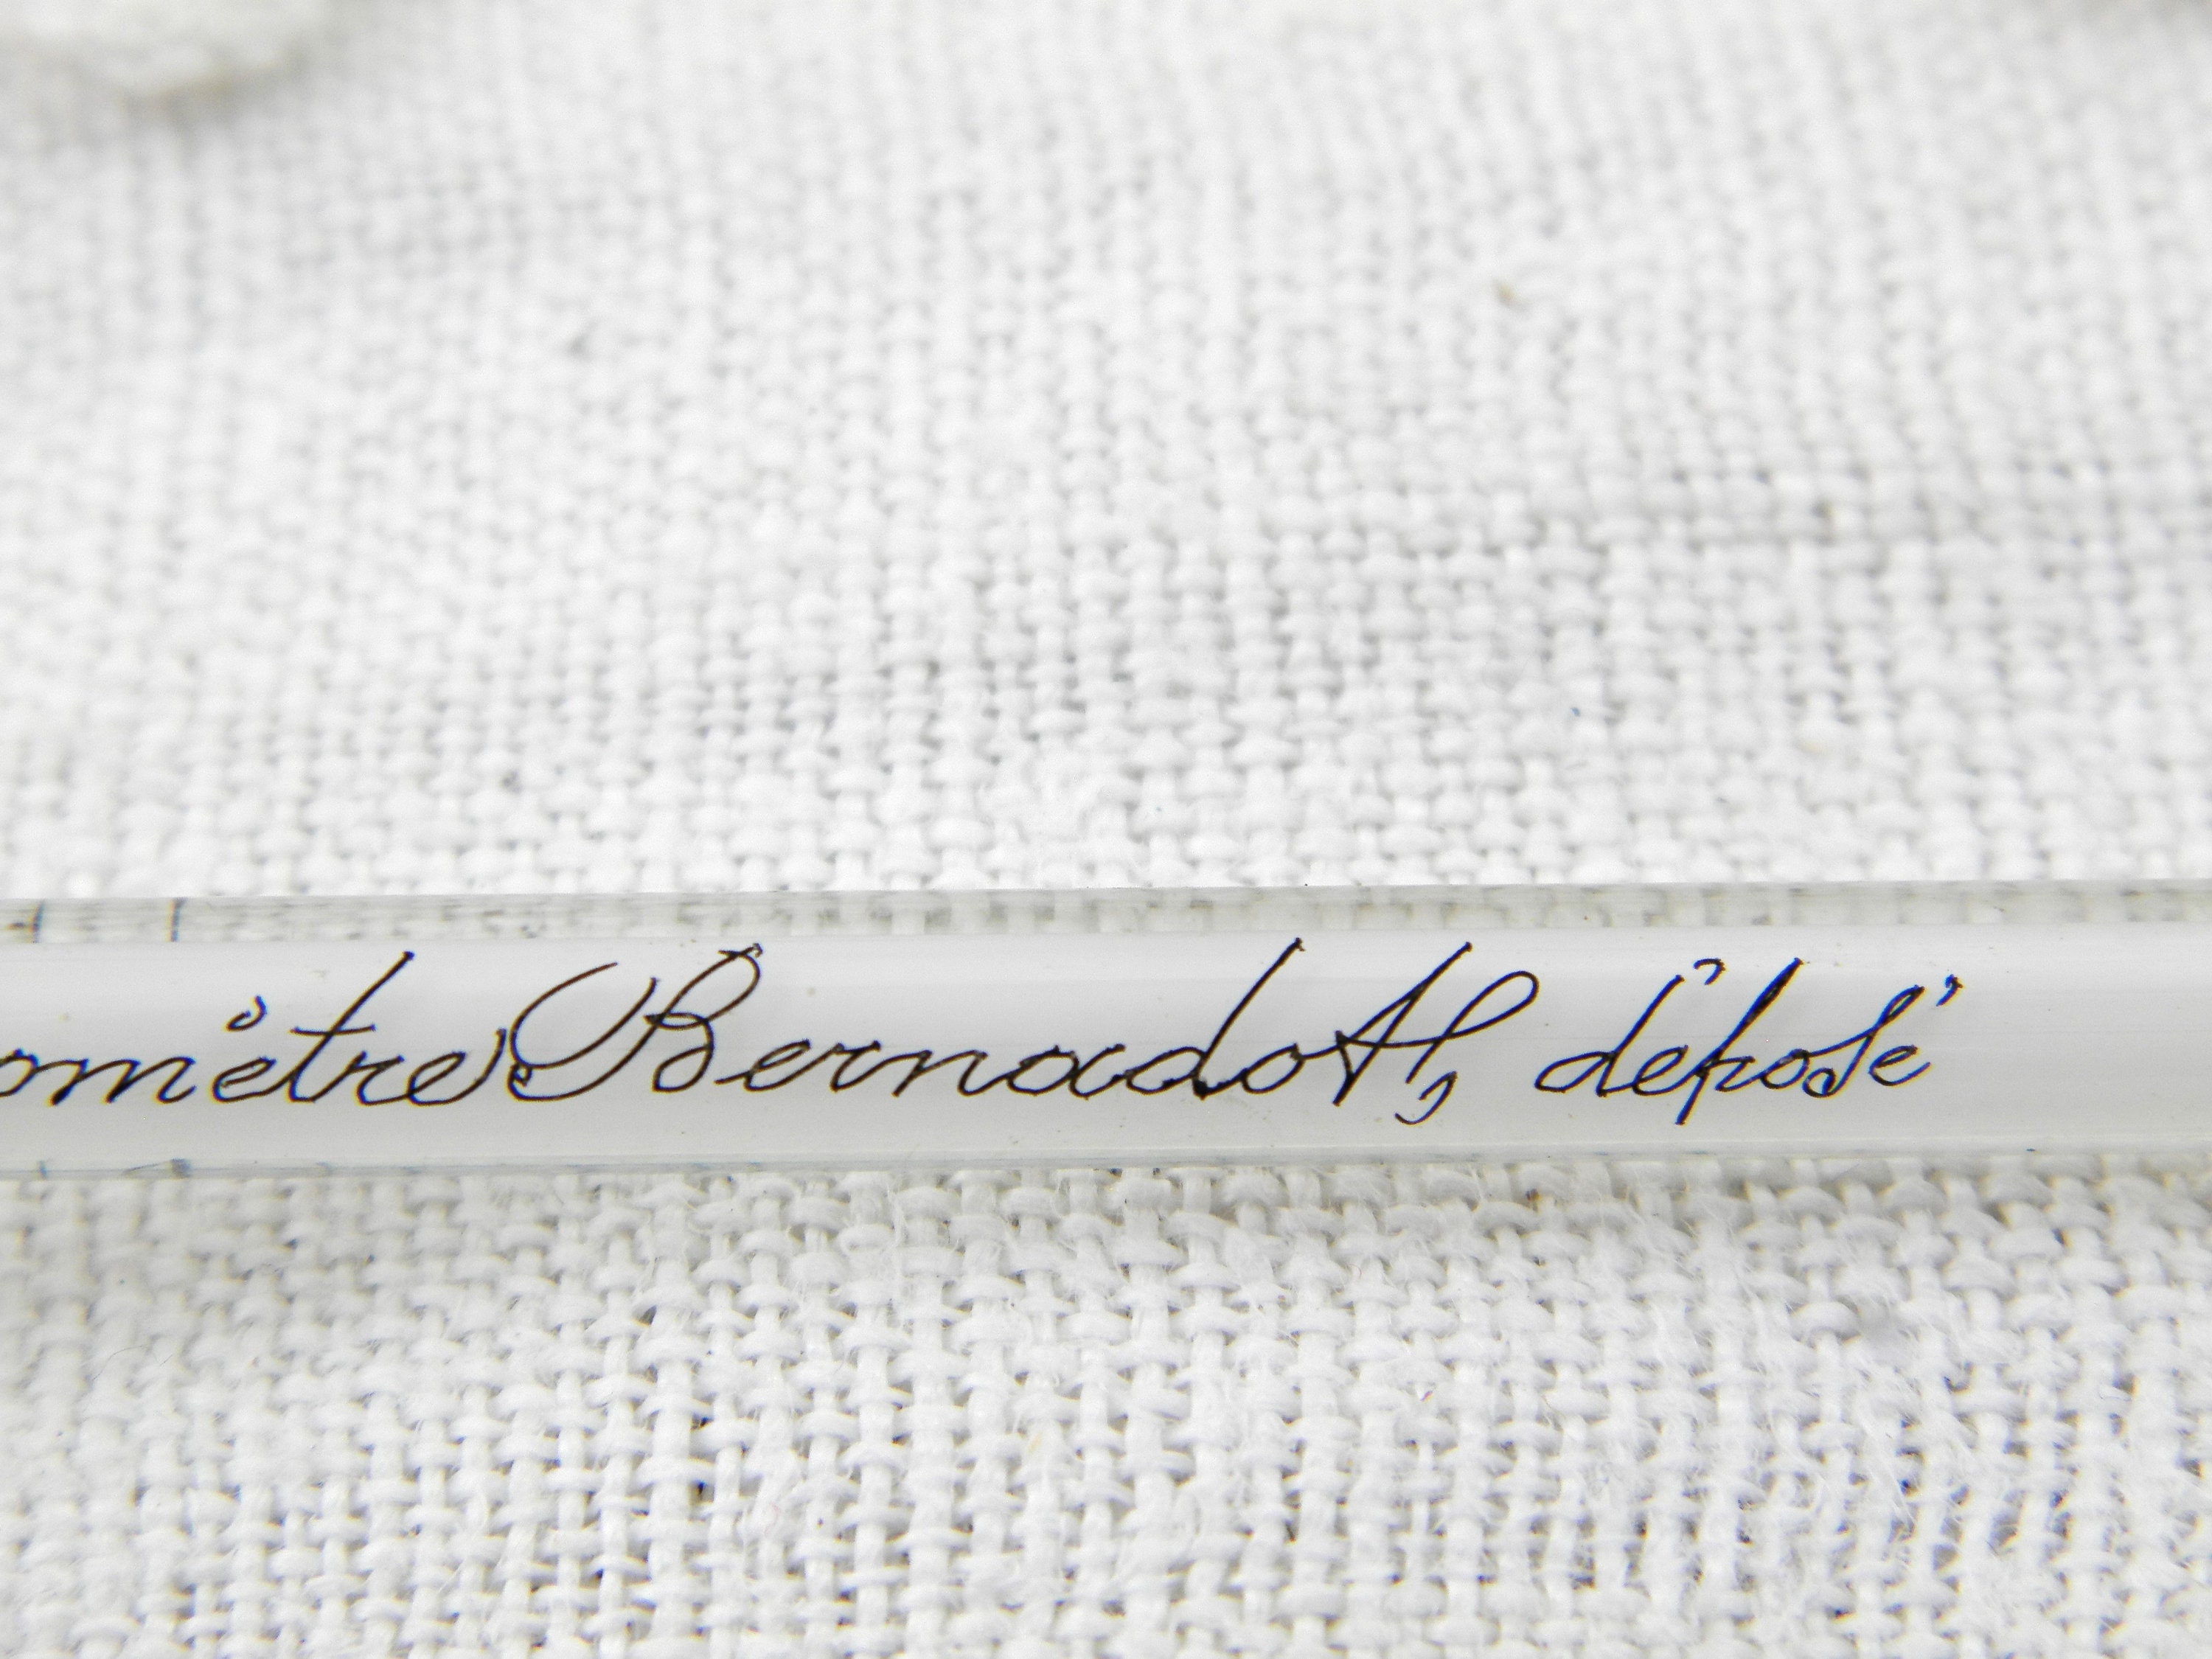 omètre Bernadot, déposé